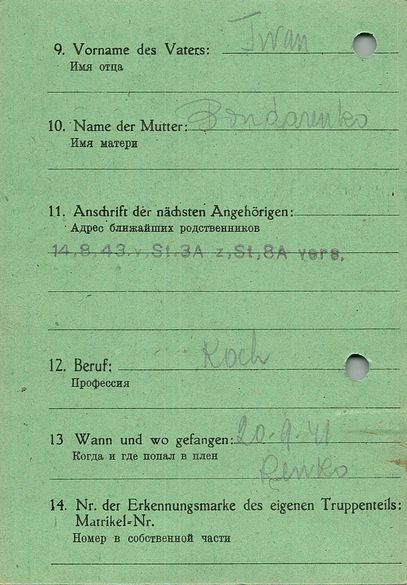 9. Vorname des Vaters: Iwan
Имя отца
10. Name der Mutter: Bondarenko
Имя матери
11. Anschrift der nächsten Angehörigen:
Адрес ближайших родственников
14.8.43.v.St.3A z.St.8A vers.
12. Beruf: Koch
Профессия
13 Wann und wo gefangen: 20.9.41
Когда и где попал в плен
Renko
14. Nr. der Erkennungsmarke des eigenen Truppenteils:
Matrikel-Nr.
Номер в собственной части